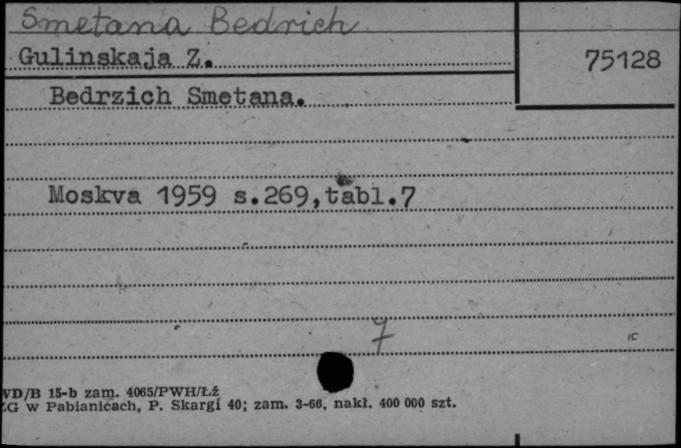 Smetana Bedrich
Gulinskaja Z.
75128
Bedrzich Smetana.
Moskva 1959 s.269,tabl.7
7
VD/B 15-b zam. 4065/PWH/Łź
ZG w Pabianicach, P. Skargi 40; zam. 3-66, nakł. 400 000 szt.